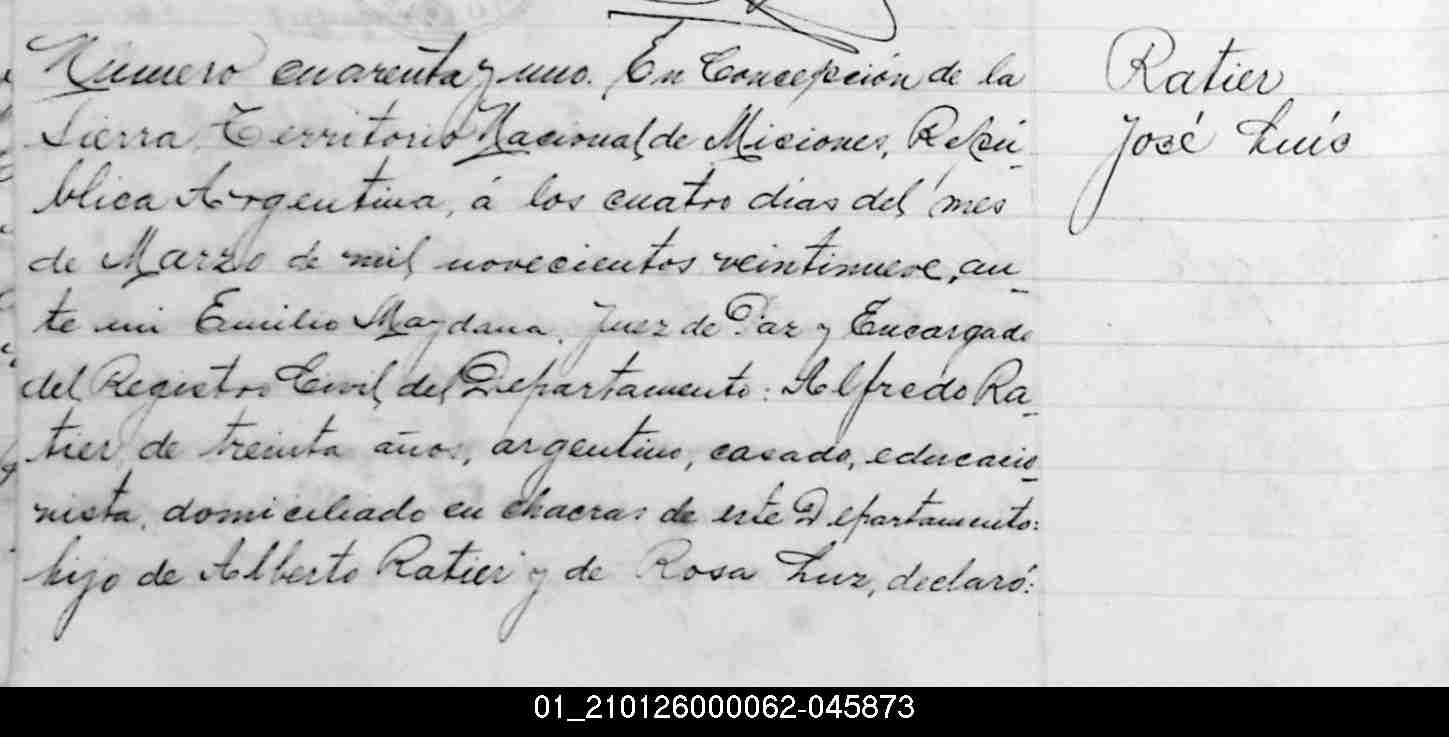 Número cuarenta y uno. En Concepción de la
Sierra, Territorio Nacional de Misiones, Repú-
blica Argentina, á los cuatro dias del mes
de Marzo de mil novecientos veintinueve, an-
te mi Emilio Maydana, Juez de Paz y Encargado
del Registro Civil del Departamento: Alfredo Ra-
tier, de treinta años, argentino, casado, educacio-
nista, domiciliado en chacras de este Departamento:
hijo de Alberto Ratier y de Rosa Luz, declaró:
Ratier
José Luís
01_210126000062-045873